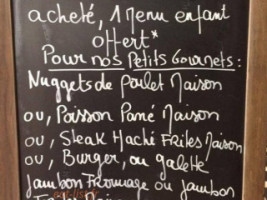 acheté, 1 Menu enfant
offert*
Pour nos Petits Gourmets :
Nuggets de Poulet Maison
ou, Poisson Pané Maison
ou, Steak Haché Frites Maison
ou, Burger, ou galette
Jambon Fromage ou jambon